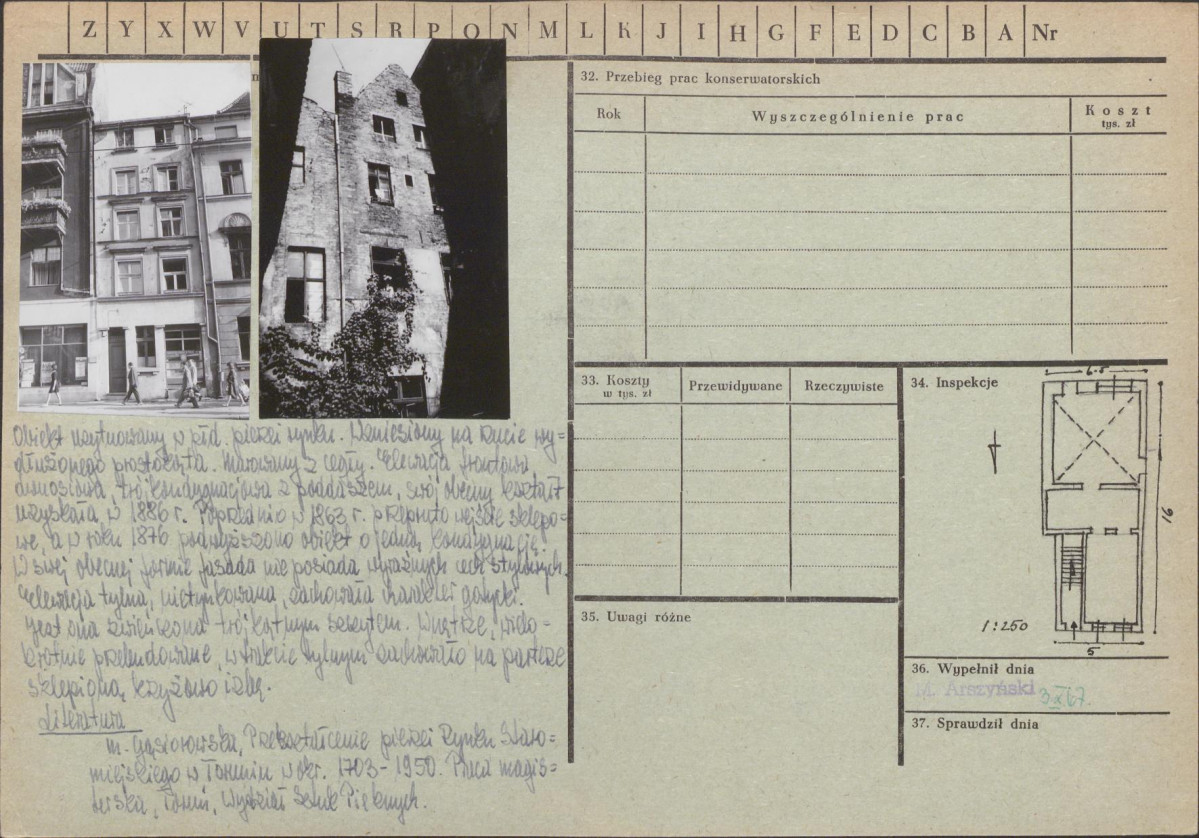 Z Y X W V U T S R P O N M L K J I H G F E D C B A Nr
32. Przebieg prac konserwatorskich
Rok
Wyszczególnienie prac
Koszt
tys. zł
33. Koszty
w tys. zł
Przewidywane
Rzeczywiste
34. Inspekcje
6.5
16
1:250
5
35. Uwagi różne
36. Wypełnił dnia
M. Arszyński 3.X.67.
37. Sprawdził dnia
Obiekt usytuowany w płd. pierzei rynku. Wzniesiony na rzucie wy=
dłużonego prostokąta. Murowany z cegły. Elewacja frontowa
dwuosiowa, trójkondygnacjowa z poddaszem, swój obecny kształt
uzyskała w 1886 r. Poprzednio w 1863 r. przepruto wejście sklepo=
we, a w roku 1876 podwyższono obiekt o jedną kondygnację.
W swej obecnej formie fasada nie posiada wyraźnych cech stylowych.
Elewacja tylna, nietynkowana, zachowała charakter gotycki.
Jest ona zwieńczona trójkątnym szczytem. Wnętrze, wielo=
krotnie przebudowane, w trakcie tylnym zachowało na parterze
sklepioną krzyżowo izbę.
Literatura
M. Gąsiorowska, Przekształcenie pierzei Rynku Staro=
miejskiego w Toruniu w okr. 1703-1950. Praca magis=
terska, Toruń, Wydział Sztuk Pięknych.